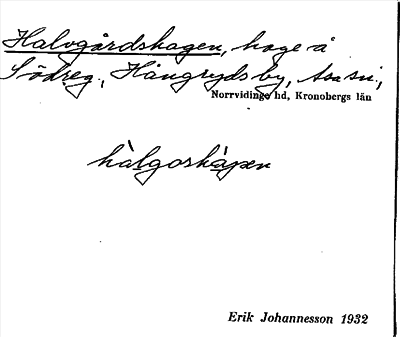 Halvgårdshagen, hage å
Södreg., Hångryds by,
Norrvidinge hd, Kronobergs län
hàlgoshàgen
Erik Johannesson 1932